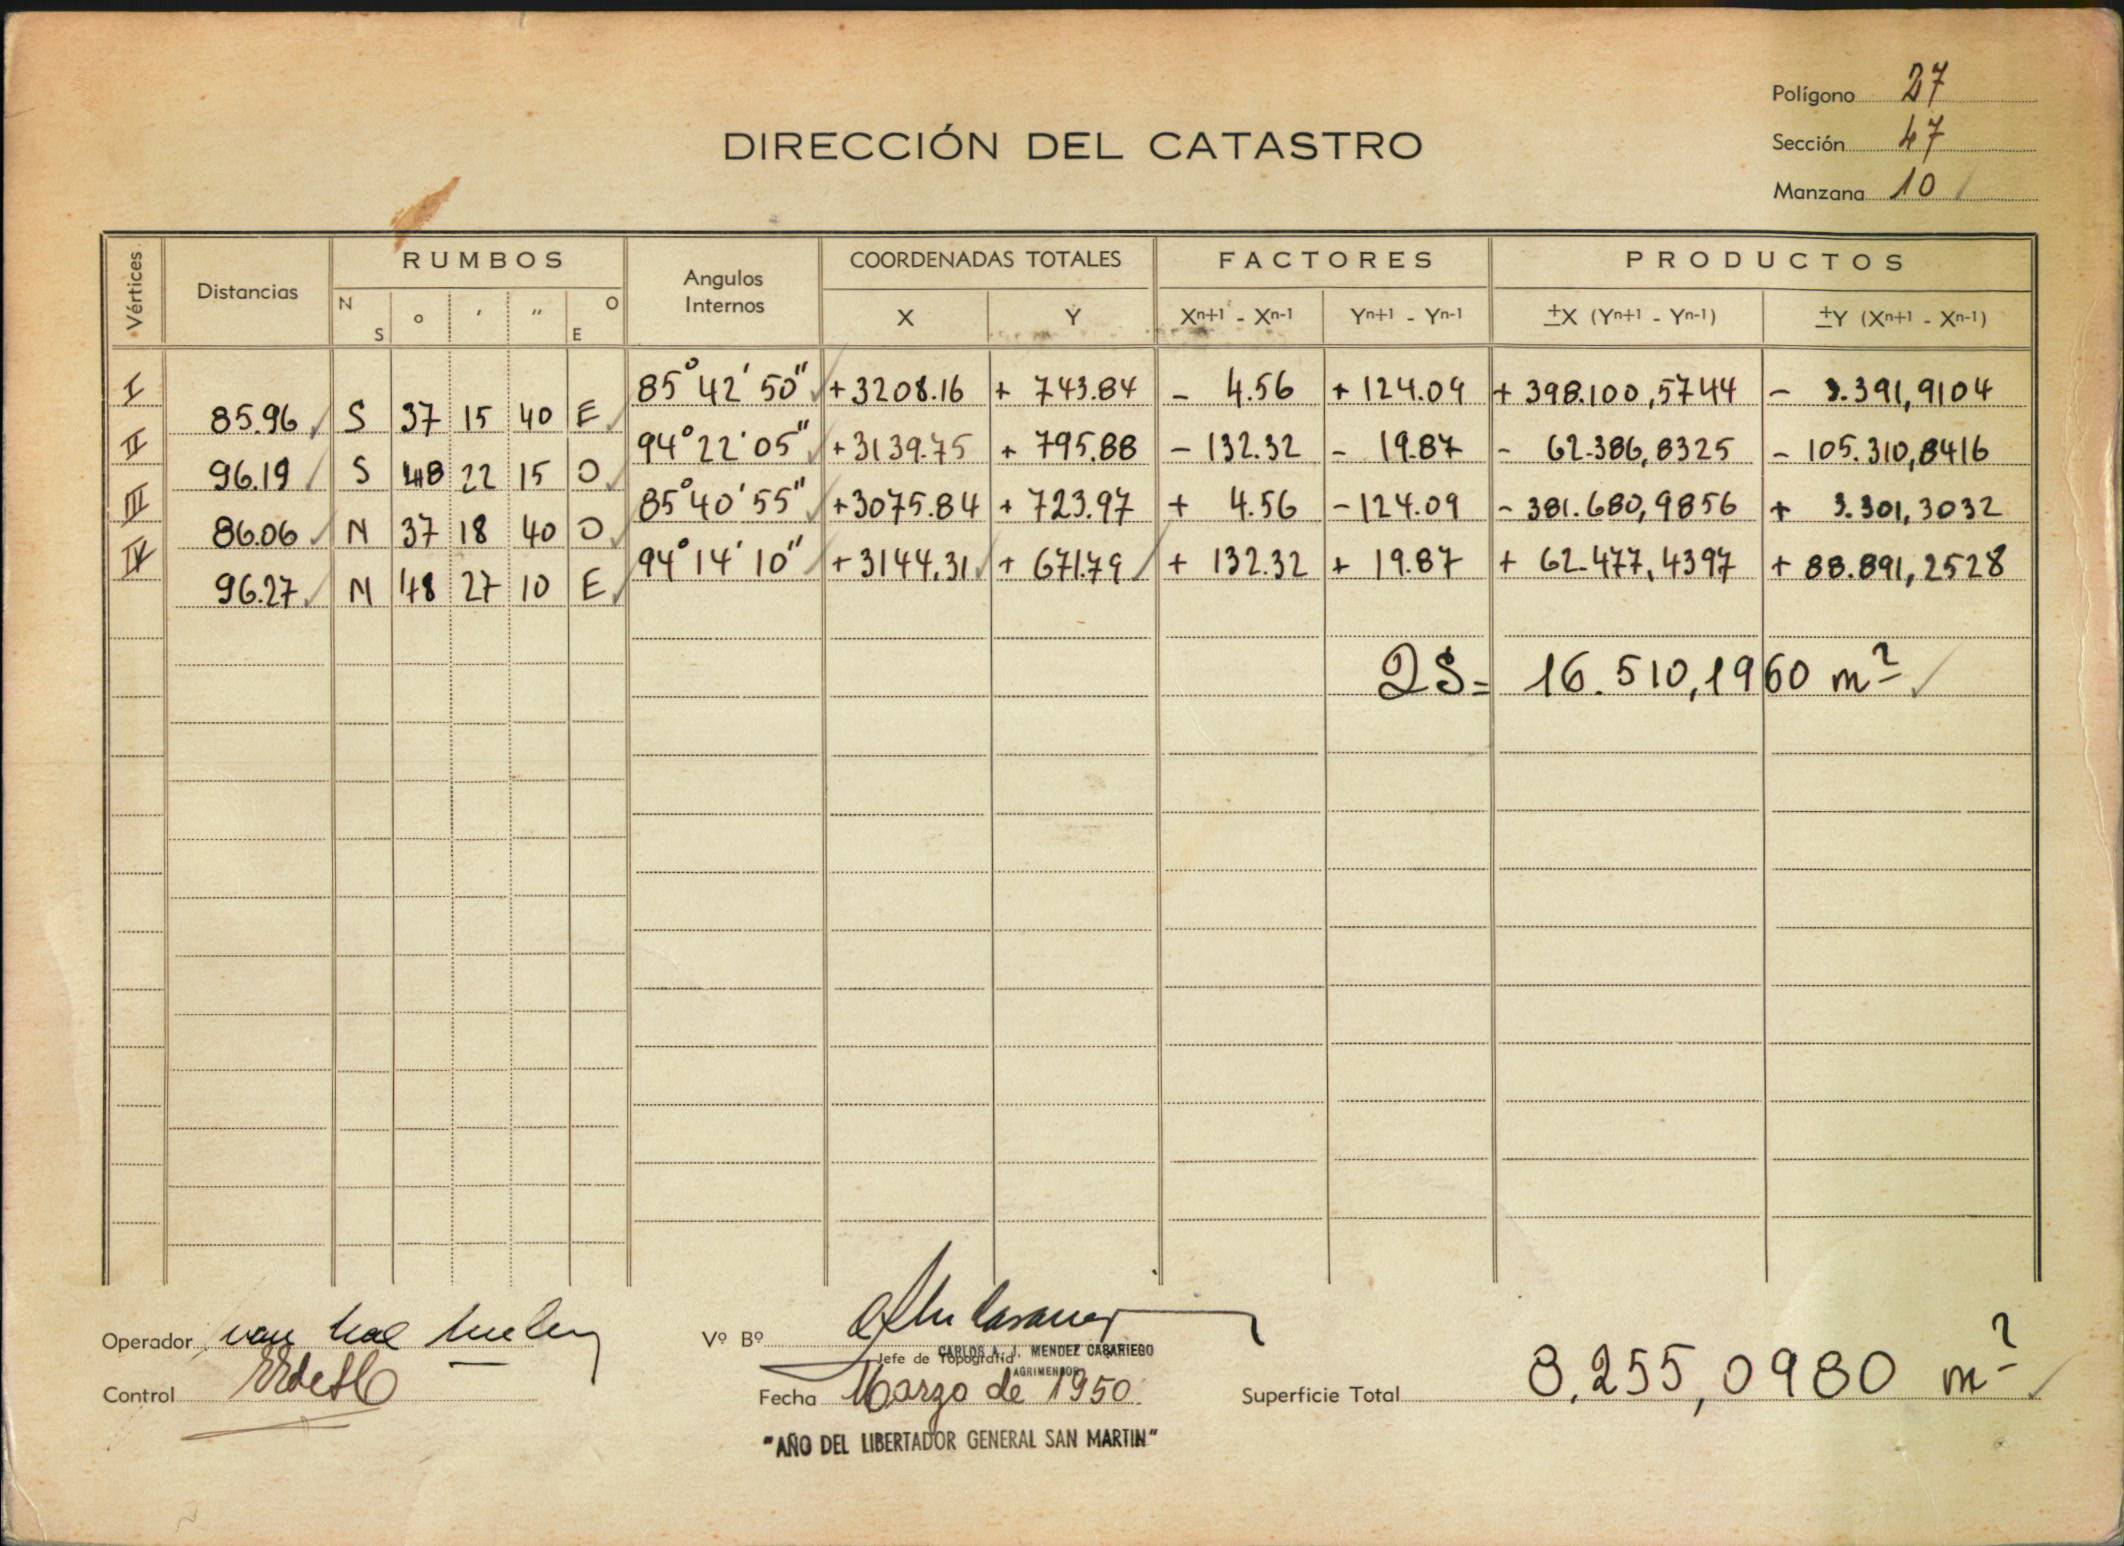 Polígono 27
DIRECCIÓN DEL CATASTRO
Sección 47
Manzana 10
Vértices. Distancias RUMBOS N S ° ′ ″ O E Angulos Internos COORDENADAS TOTALES X Y FACTORES Xn+1 - Xn-1 Yn+1 - Yn-1 PRODUCTOS ±X (Yn+1 - Yn-1) ±Y (Xn+1 - Xn-1)
I 85° 42' 50" +3208.16 + 743.84 - 4.56 + 124.09 + 398.100,5744 - 3.391,9104
85.96 S 37 15 40 E
II 94° 22' 05" +3139.75 + 795.88 - 132.32 - 19.87 - 62.386,8325 - 105.310,8416
96.19 S 48 22 15 O
III 85° 40' 55" +3075.84 + 723.97 + 4.56 - 124.09 - 381.680,9856 + 3.301,3032
86.06 N 37 18 40 O
IV 94° 14' 10" +3144.31 + 671.79 + 132.32 + 19.87 + 62.477,4397 + 88.891,2528
96.27 N 48 27 10 E
2S= 16.510,1960 m²
Operador
Vº Bº
Jefe de Topografía
CARLOS A. J. MENDEZ CASARIEGO
AGRIMENSOR
Control
Fecha Marzo de 1950.
Superficie Total 8.255,0980 m²
"AÑO DEL LIBERTADOR GENERAL SAN MARTIN"